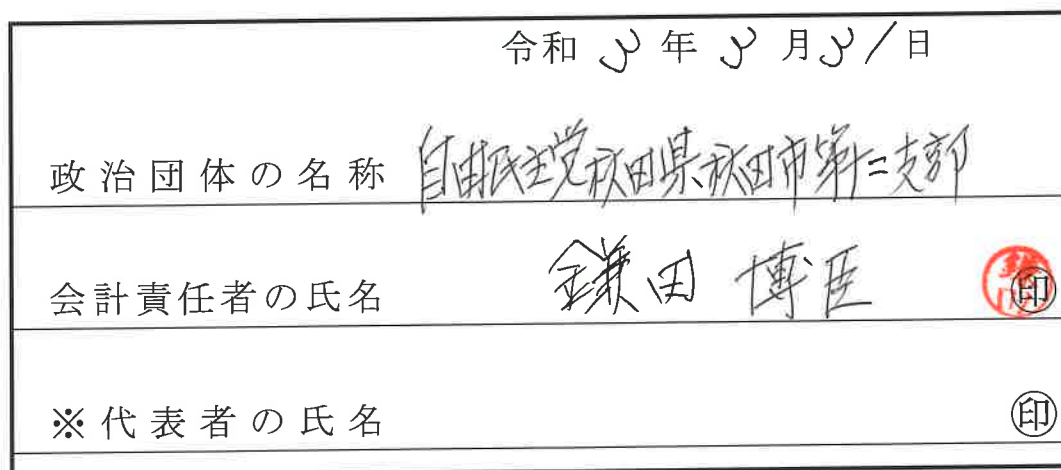 令和 3 年 3 月 31 日
政治団体の名称 自由民主党秋田県秋田市第十二支部
会計責任者の氏名 鎌田 博臣 印
※代表者の氏名 印